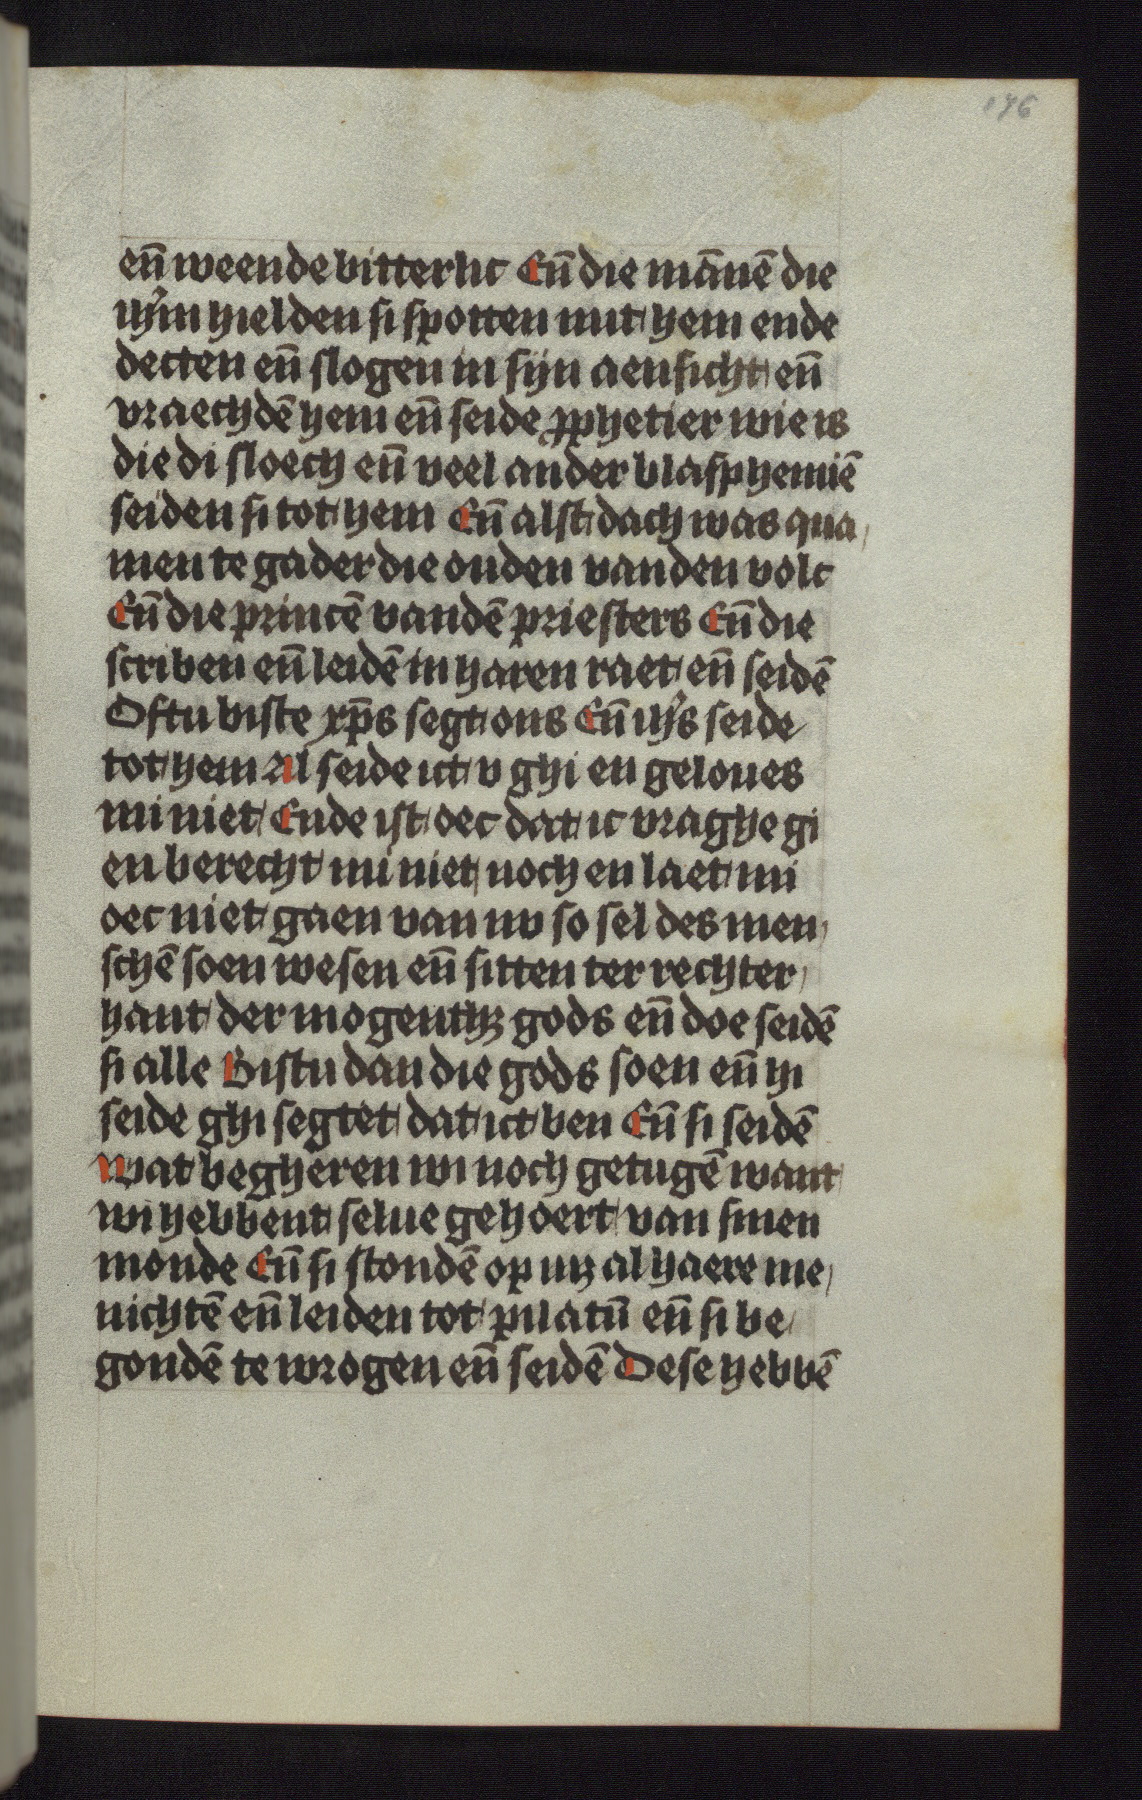 176
en̄ weende bitterlic En̄ die mānē die
ihm̄ hielden si spotten mit hem ende
decten en̄ slogen in sijn aensicht en̄
vraechdē hem en̄ seide ꝓphetier wie is
die di sloech en̄ veel ander blasphemiē
seiden si tot hem En̄ alst dach was qua
men te gader die ouden vanden volc
En̄ die princē vandē priesters En̄ die
scriben en̄ leidē in haren raet en̄ seidē
Oftu biste xp̄s segt ons En̄ ihs̄ seide
tot hem Al seide ict v ghi en geloues
mi niet Ende ist oec dat ic vraghe gi
en berecht mi niet noch en laet mi
oec niet gaen van nv so sel des men
schē soen wesen en̄ sitten ter rechter
hant der mogenthꝫ gods en̄ doe seidē
si alle Bistu dan die gods soen en̄ hi
seide ghi segtet dat ict ben En̄ si seidē
Wat begheren wi noch getugē want
wi hebbent selue gehoert van sinen
monde En̄ si stondē op uꝫ al haere me
nichtē en̄ leiden tot pilatū en̄ si be
gondē te wrogen en̄ seidē Dese hebbē